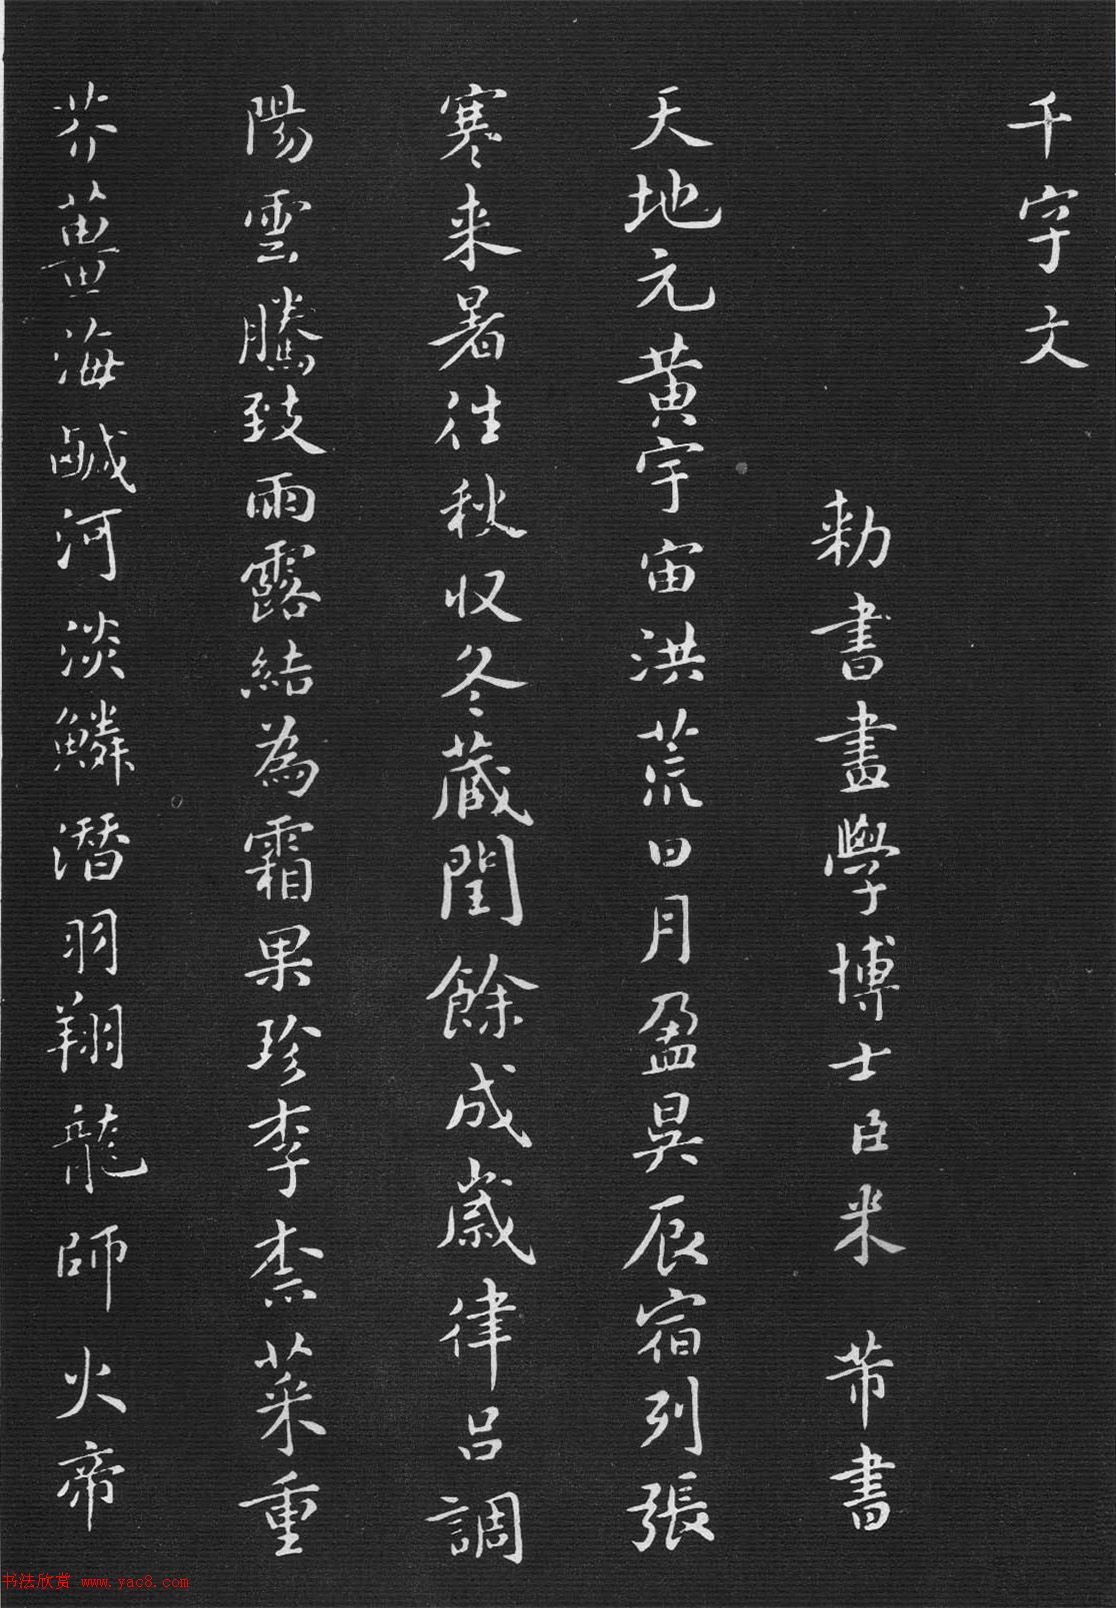 千字文
勑書畫學博士臣米芾書
天地元黃宇宙洪荒日月盈昃辰宿列張
寒来暑往秋收冬藏閏餘成歲律呂調
陽雲騰致雨露結為霜果珍李柰菜重
芥薑海鹹河淡鱗潛羽翔龍師火帝
书法欣赏 www.yac8.com